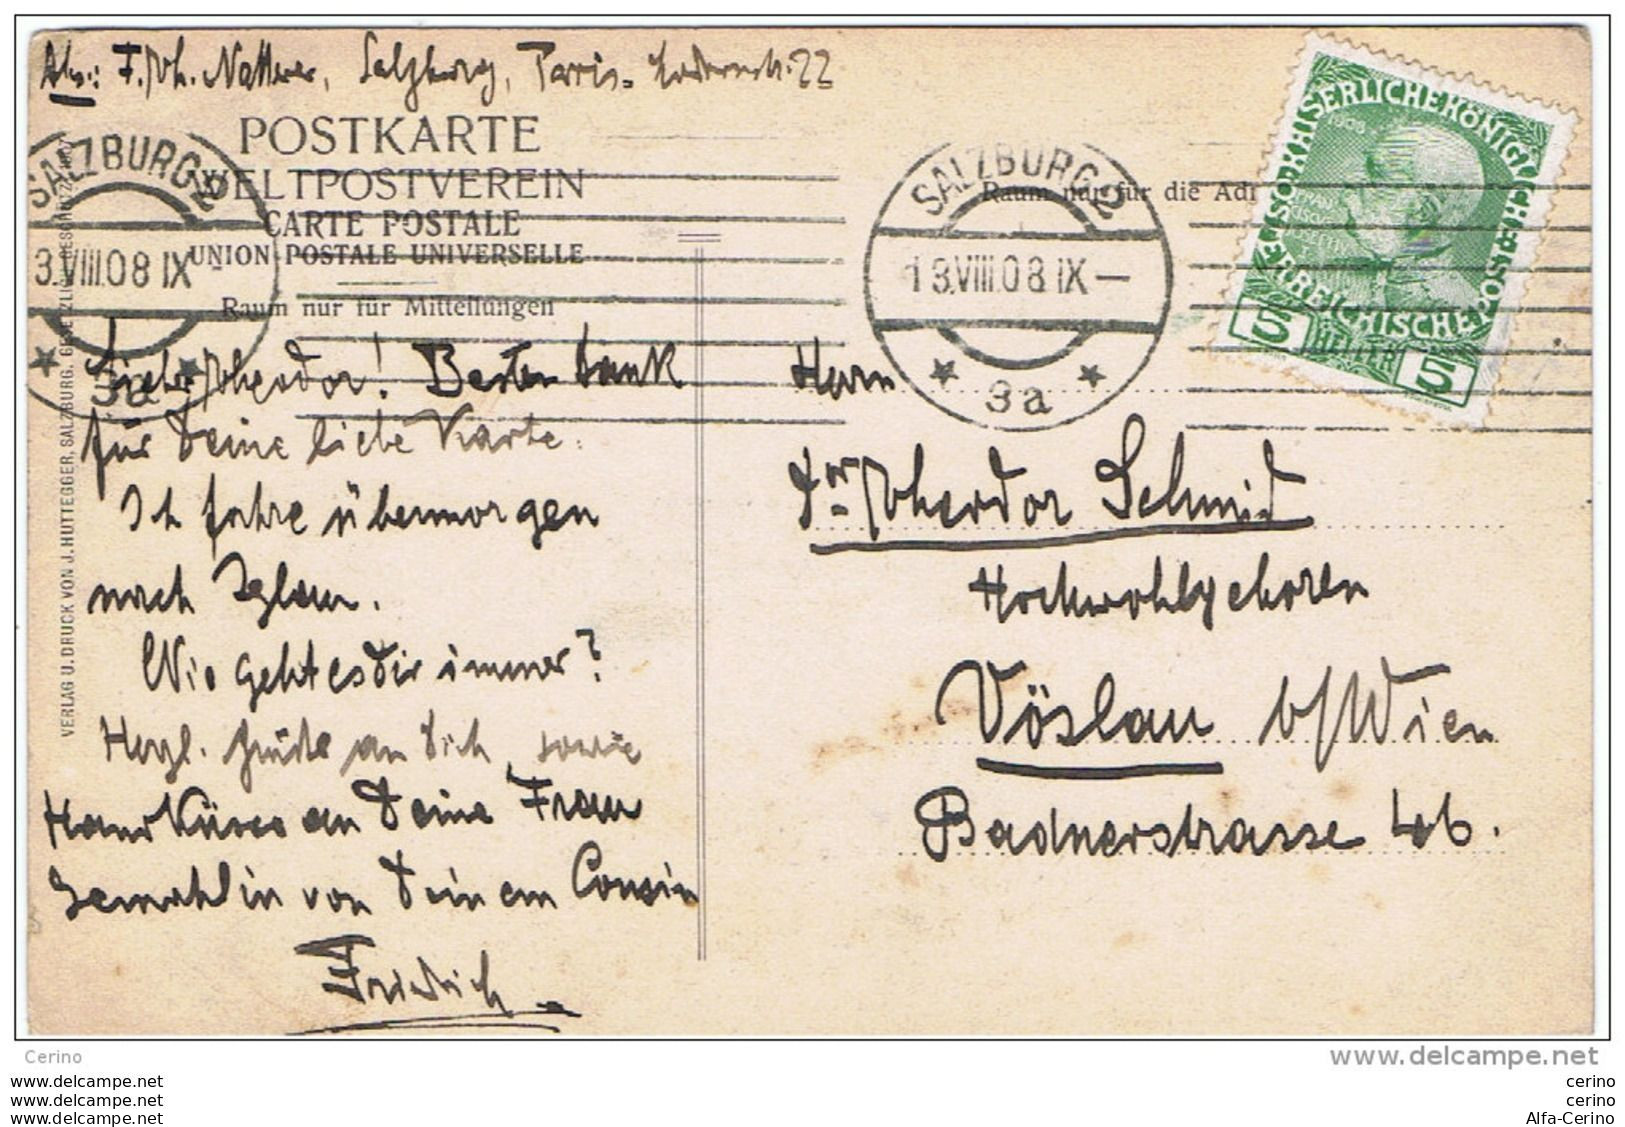 Abs.: F. Th. Natterer, Salzburg, Paris- 22
POSTKARTE
WELTPOSTVEREIN
CARTE POSTALE
UNION POSTALE UNIVERSELLE
Raum nur für Mitteilungen
SALZBURG 2
3.VIII.08 IX
3a
Lieber Theodor! Besten Dank
für Deine liebe Karte.
Ich fahre übermorgen
nach Iglau.
Wie geht es Dir immer?
Herzl. Grüße an Dich, sowie
Handküsse an Deine Frau
Gemahlin von Deinem Cousin
Friedrich
VERLAG U. DRUCK VON J. HUTTEGGER, SALZBURG. GESETZLICH GESCHÜTZT
Raum nur für die Adr
SALZBURG 2
13.VIII.08 IX-
3a
KAISERLICHE KÖNIGLICHE
ÖSTERREICHISCHE POST
1908
5 HELLER 5
Herrn
Dr Theodor Schmid
Hochwohlgeboren
Vöslau b/Wien
Badnerstrasse 46.
Cerino
www.delcampe.net
www.delcampe.net
www.delcampe.net
www.delcampe.net
cerino
cerino
Alfa-Cerino